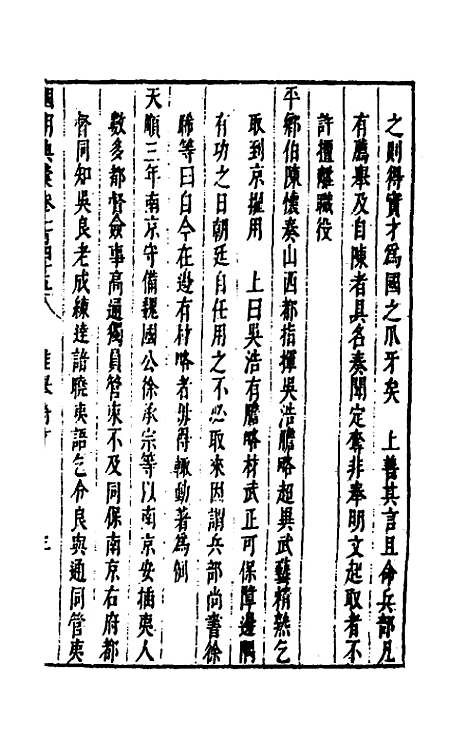 之則得實才為國之爪牙矣　上善其言且命兵部凡
有薦舉及自陳者具名奏聞定奪非奉明文起取者不
許擅離職役
平鄉伯陳懷奏山西都指揮吳浩膽略超異武藝精熟乞
取到京擢用　上曰吳浩有膽略材武正可保障邊關
有功之日朝廷自任用之不必取來因謂兵部尚書徐
晞等曰自今在邊有材略者毋得輒動著為例
天順三年南京守備魏國公徐承宗等以南京安插夷人
數多都督僉事高通獨員管束不及同保南京右府都
督同知吳良老成練達諳曉夷語乞令良與通同管夷
國朝典彙卷一百四十五
三